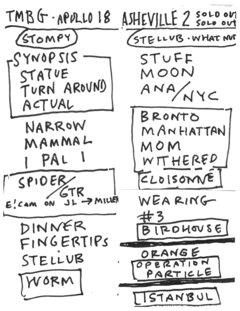 TMBG - APOLLO 18
STOMPY
SYNOPSIS
STATUE
TURN AROUND
ACTUAL
NARROW
MAMMAL
I PAL 1
SPIDER/GTR
E! CAM ON JL → MILLER
DINNER
FINGERTIPS
STELLUB
WORM
ASHEVILLE 2 SOLD OUT
SOLD OUT
STELLUB - WHAT NOT
STUFF
MOON
ANA/NYC
BRONTO
MANHATTAN
MOM
WITHERED
CLOISONNÉ
WEARING
#3
BIRDHOUSE
ORANGE
OPERATION
PARTICLE
ISTANBUL